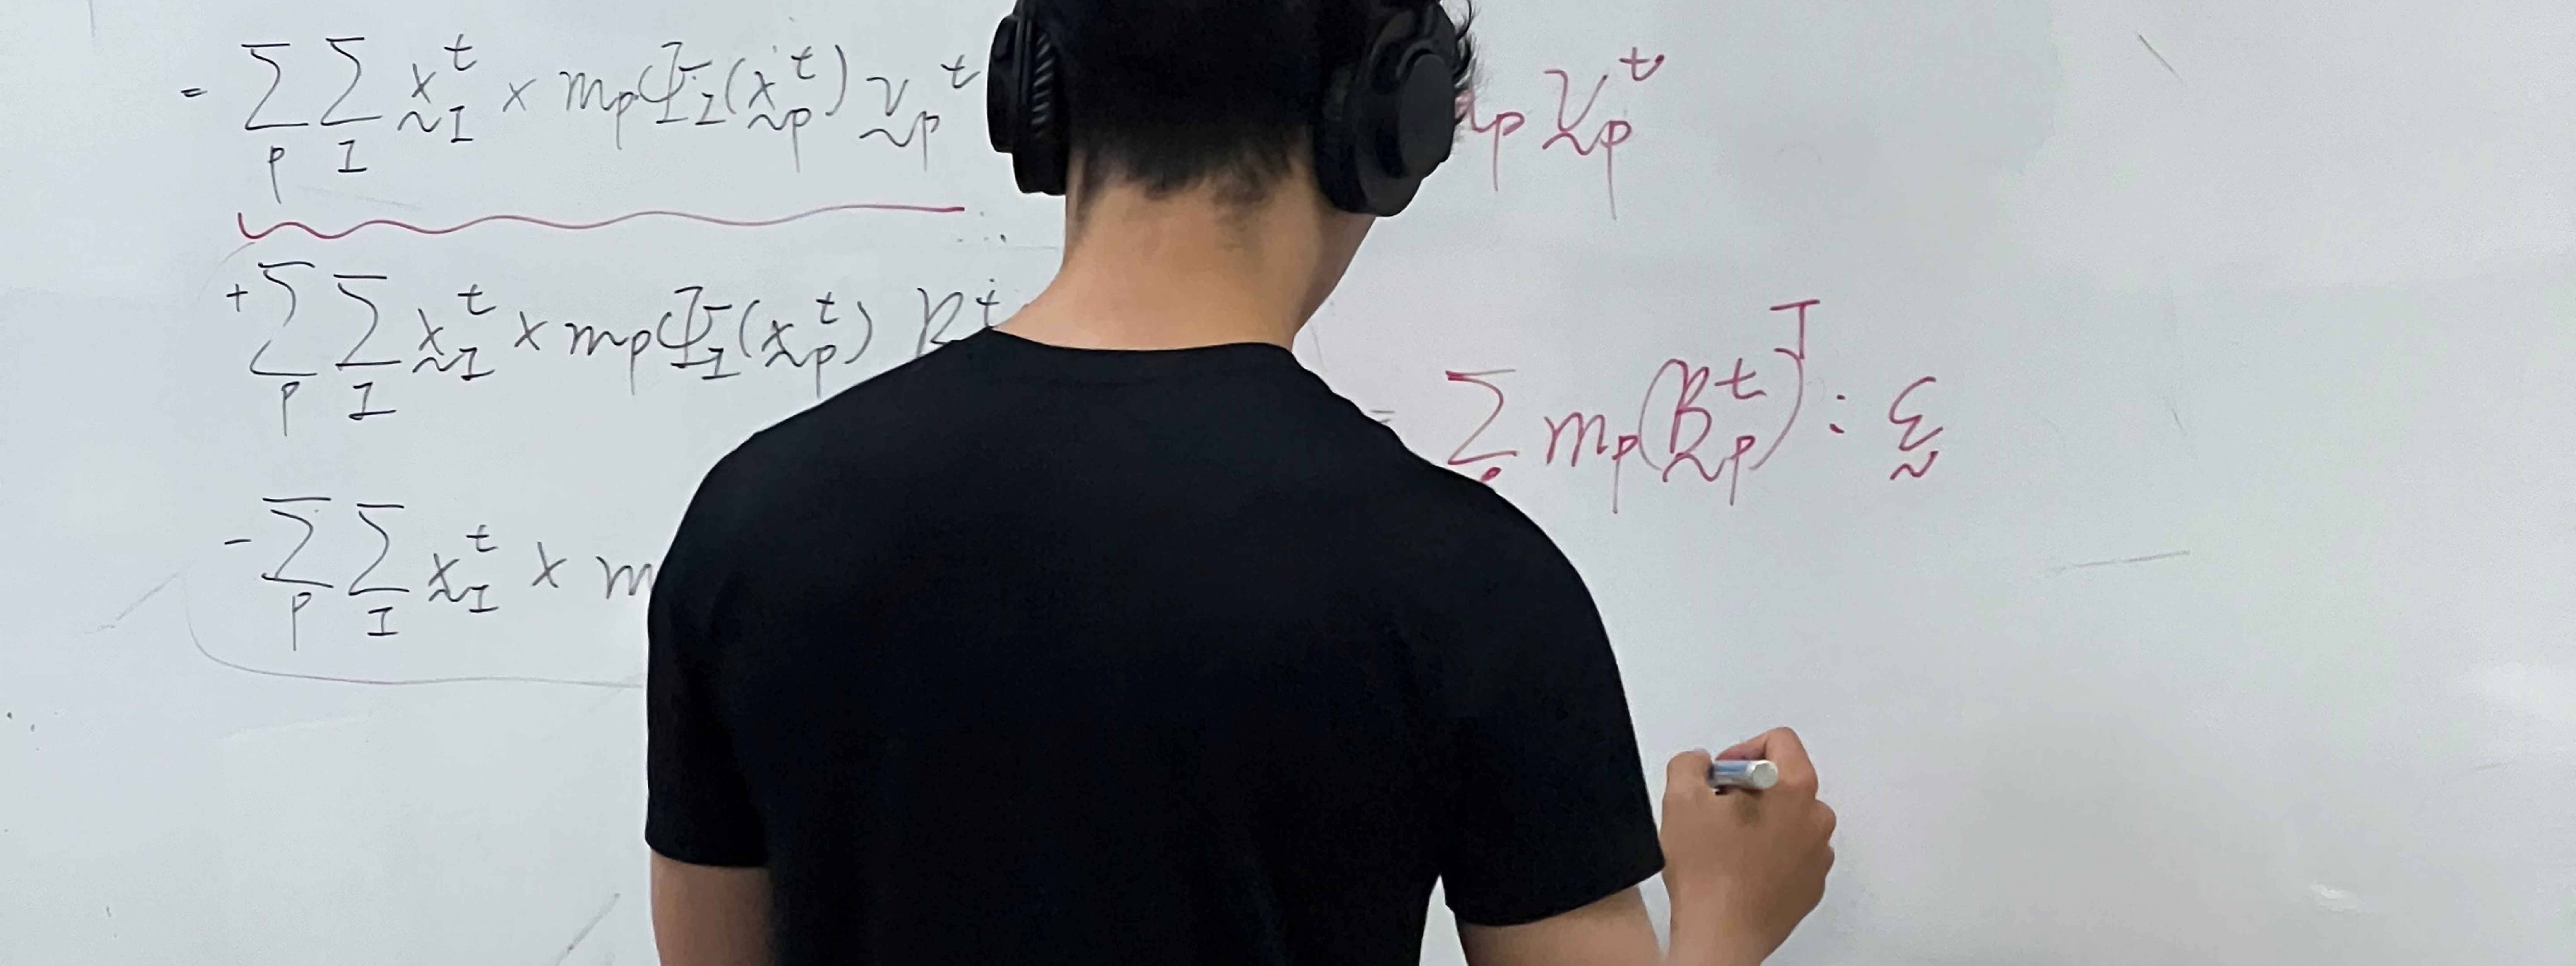 = Σ_p Σ_I x̰_I^t × m_p Φ_I(x̰_p^t) v̰_p^t
p v̰_p^t
+ Σ_p Σ_I x̰_I^t × m_p Φ_I(x̰_p^t) B^t
= Σ m_p (B̰_p^t)^T : ε̰
- Σ_p Σ_I x̰_I^t × m